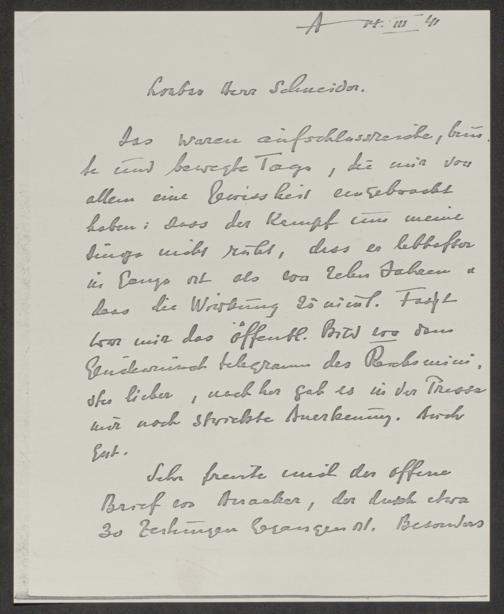 A 14. III 41
Lieber Herr Schneider.
Das waren aufschlussreiche, bun-
te und bewegte Tage, die mir vor
allem eine Gewissheit eingebracht
haben: dass der Kampf um meine
Dinge nicht ruht, dass er lebhafter
im Gange ist als vor zehn Jahren u
dass die Wirkung zunimmt. Fast
war mir das öffentl. Bild vor dem
Glückwunschtelegramm des Reichsmini-
sters lieber, nachher gab es in der Presse
nur noch strickte Anerkennung. Auch
gut.
Sehr freute mich der offene
Brief von Anacker, der durch etwa
30 Zeitungen gegangen ist. Besonders